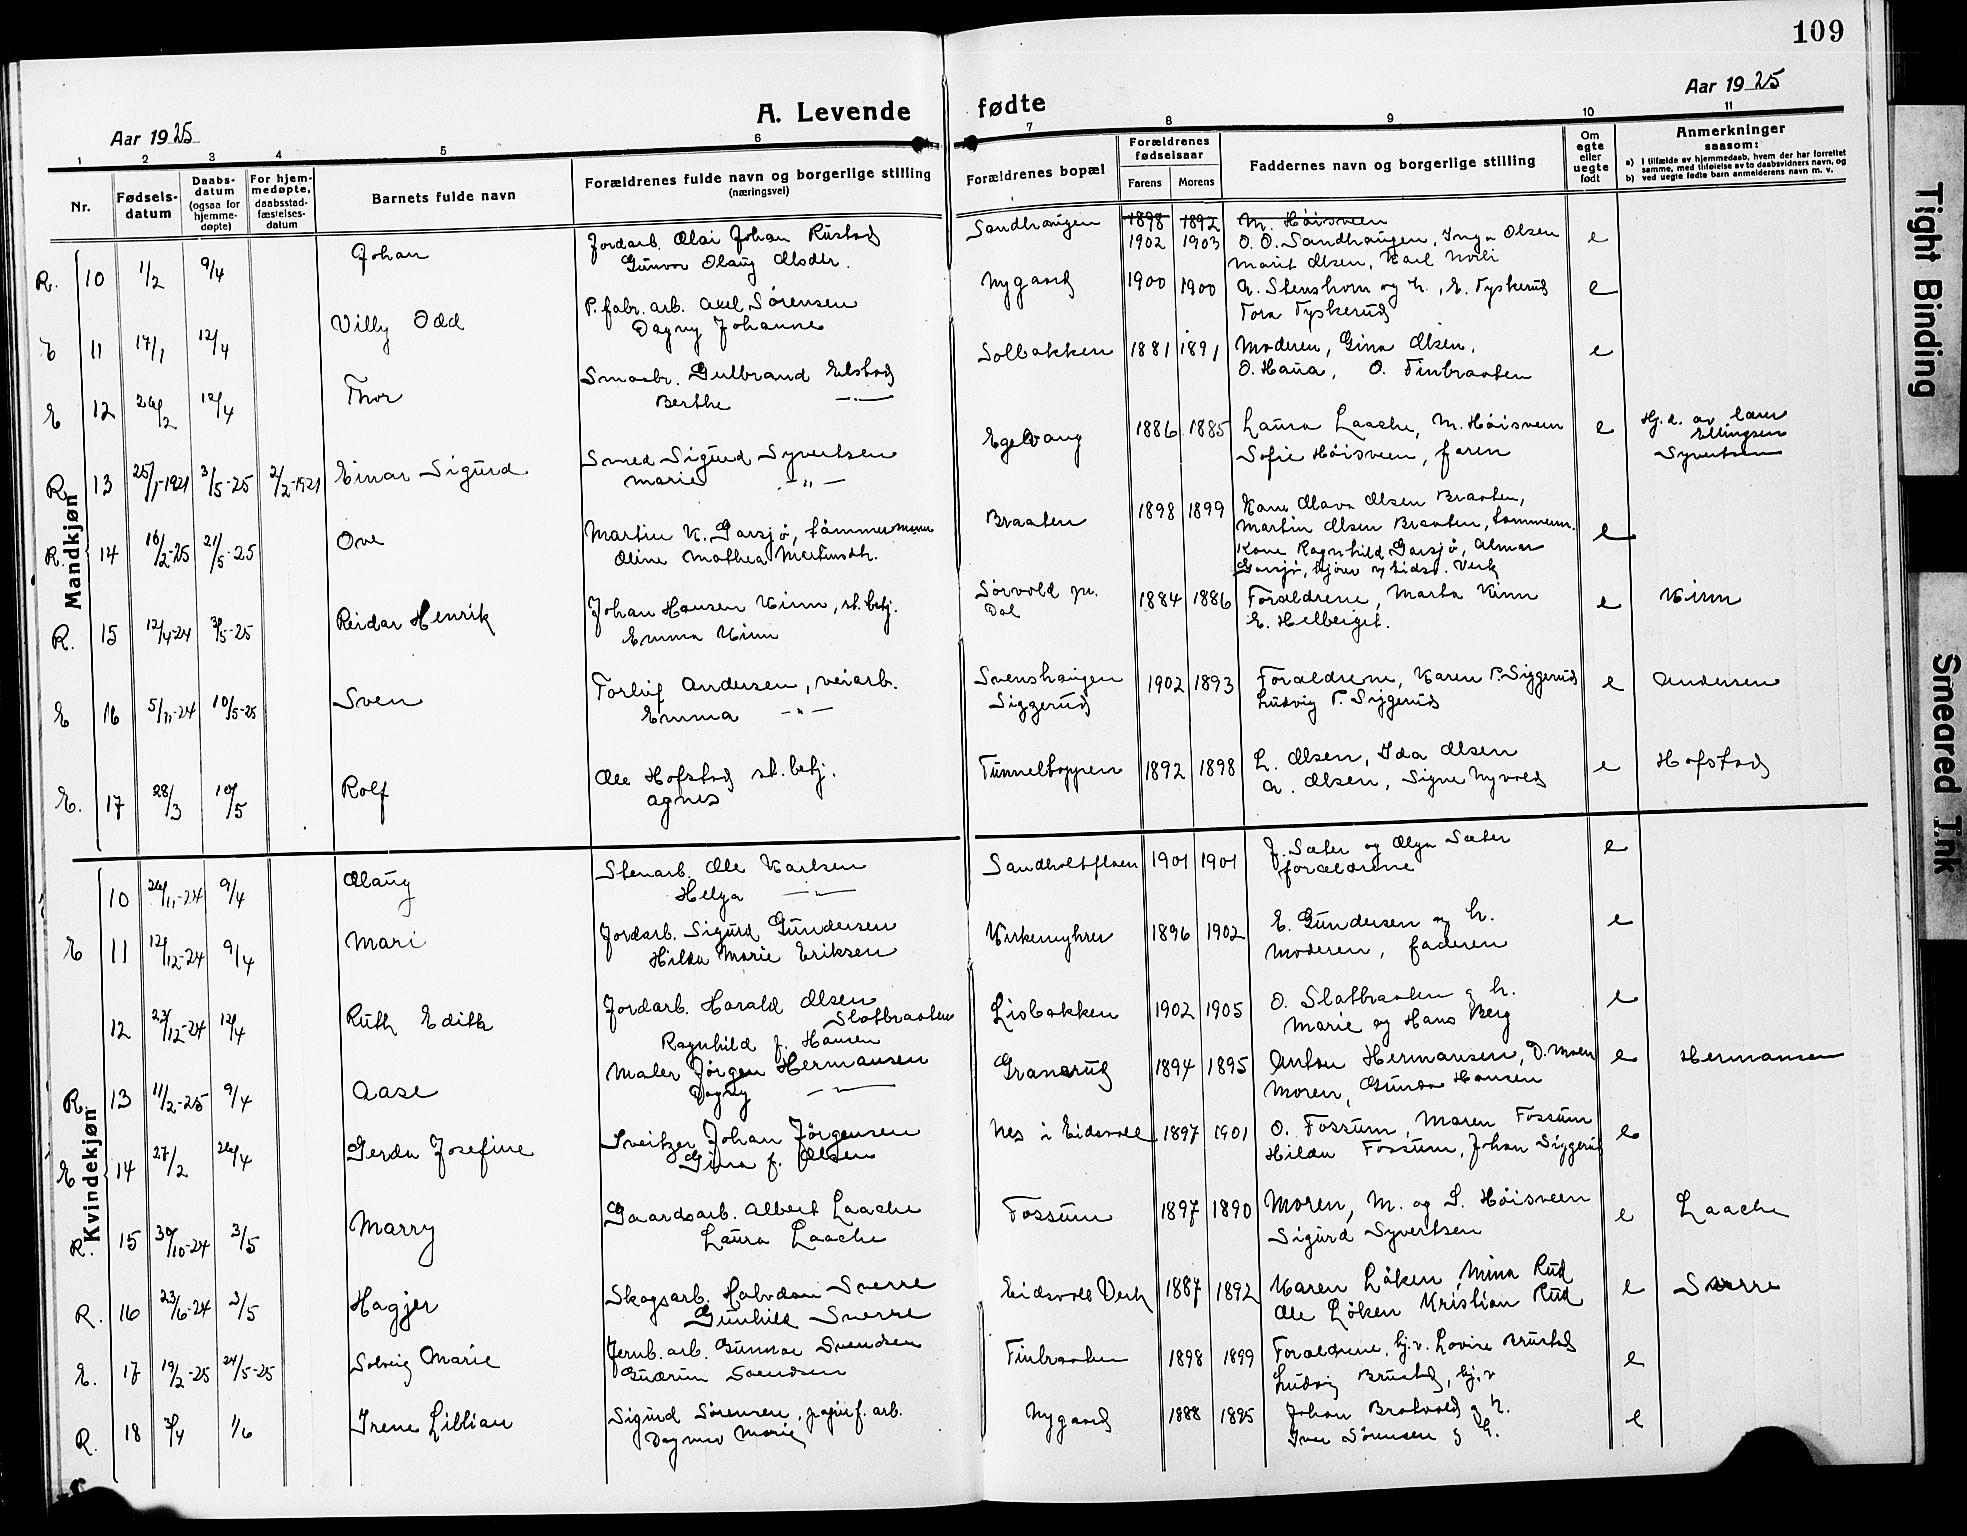 109
Aar 1925
A. Levende
fødte
Aar 1925
1 2 3 4 5 6 7 8 9 10 11
Nr.
Fødsels-
datum
Daabs-
datum
(ogsaa for
hjemme-
døpte)
For hjem-
medøpte,
daabsstad-
fæstelses-
datum
Barnets fulde navn
Forældrenes fulde navn og borgerlige stilling
(næringsvei)
Forældrenes bopæl
Forældrenes
fødselsaar
Farens Morens
Faddernes navn og borgerlige stilling
Om
egte
eller
uegte
født
Anmerkninger
saasom:
a) I tilfælde av hjemmedaab, hvem der har forrettet
samme, med tilføielse av to daabsvidners navn, og
b) ved uegte fødte barn anmelderens navn m. v.
Mandkjøn
R. 10 1/2 9/4 Johan
Jordarb. Olai Johan Rustad
Gunvor Olaug Olsdtr.
Sandhaugen 1898 1892 M. Høisveen
1902 1903 O. O. Sandhaugen, Inga Olsen e
Marit Olsen, Karl
E 11 17/1 12/4 Villy Odd
P. fabr. arb. Axel Sørensen
Dagny Johanne
Nygaard 1900 1900 A. Stenshorn og h., E. Tyskerud e
Tora Tyskerud
E 12 26/2 12/4 Thor
Smaabr. Gulbrand Elstad
Berthe —"—
Solbakken 1881 1891 Moderen, Gina Olsen, e
O. Haua, O. Finbraaten
R. 13 25/1-1921 3/5-25 2/2-1921 Einar Sigurd
Smed Sigurd Syvertsen
Marie —"—
Egelvang 1886 1885 Laura Laache, M. Høisveen e
Sofie Høisveen, faren
Hj.d. av lærer
Ellingsen
Syvertsen
R. 14 16/2-25 21/5-25 Ove
Martin K. Garsjø, tømmermann
Oline Mathea Martinsdtr.
Braaten 1898 1899 Kone Olava Olsen Braaten, e
Martin Olsen Braaten, tømmerm.
Kone Ragnhild Garsjø, Almar
Garsjø, Eidsv. Verk
R. 15 12/4-24 3/5-25 Reidar Henrik
Johan Hansen Kinn, st. betj.
Emma Kinn
Sørvold pr.
Dal
1884 1886 Forældrene, Marta Kinn e Kinn
E. Helberget.
E 16 5/11-24 10/5-25 Sven
Torleif Andersen, veiarb.
Emma —"—
Svenshaugen
Siggerud
1902 1893 Forældrene, Karen P. Siggerud e Andersen
Ludvig P. Siggerud
E. 17 28/3 10/5 Rolf
Ole Hofstad st. betj.
Agnes
Tunneltoppen 1892 1898 L. Olsen, Ida Olsen e Hofstad
A. Olsen, Signe Nyvold
Kvindekjøn
10 26/11-24 9/4 Olaug
Stenarb. Ole Karlsen
Helga —"—
Sandholtfloen 1901 1901 J. Sæter og Olga Sæter e
forældrene
E 11 12/12-24 9/4 Mari
Jordarb. Sigurd Gundersen
Hilda Marie Eriksen
Kirkemyhrer 1896 1902 E. Gundersen og h. e
Moderen, faderen
12 23/12-24 12/4 Ruth Edith
Jordarb. Harald Olsen
Slatbraaten
Ragnhild f. Hansen
Lisbakken 1902 1905 O. Slatbraaten og h. e
Marie og Hans Berg
R. 13 11/2-25 9/4 Aase
Maler Jørgen Hermansen
Dagny —"—
Granerud 1894 1895 Anton Hermansen, D. Moen e Hermansen
Moren, Gunda Hansen
E 14 27/2 26/4 Gerda Josefine
Sveitzer Johan Jørgensen
Gina f. Olsen
Nes i Eidsvoll 1897 1901 O. Fossum, Maren Fossum e
Hilda Fossum, Johan Siggerud
R. 15 30/10-24 3/5 Marry
Gaardsarb. Albert Laache
Laura Laache
Fossum 1897 1890 Moren, M. og S. Høisveen e Laache
Sigurd Syvertsen
R. 16 23/6-24 3/5 Hagjer
Skogsarb. Halvdan Sverre
Gunhild Sverre
Eidsvoll Verk 1887 1892 Karen Løken, Mina Rud e Sverre
Ole Løken Kristian Rud
E. 17 19/2-25 24/5-25 Solveig Marie
Jernb. arb. Gunnar Svendsen
Gudrun Svendsen
Finbraaten 1898 1899 Forældrene, hj.v. Lovise Brustad e
Ludvig Brustad, hj.v
R. 18 3/4 1/6 Irene Lillian
Sigurd Sørensen, papirf. arb.
Dagmar Marie
Nygaard 1888 1895 Johan Bratvold og h. e
Iver Sørensen og h.
Tight Binding
Smeared Ink